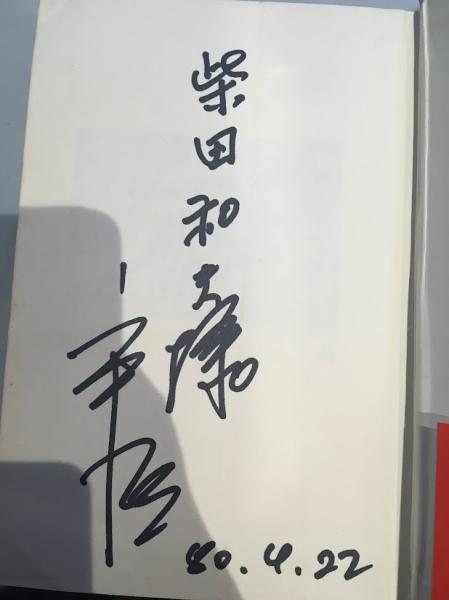 柴田和夫様
80.4.22